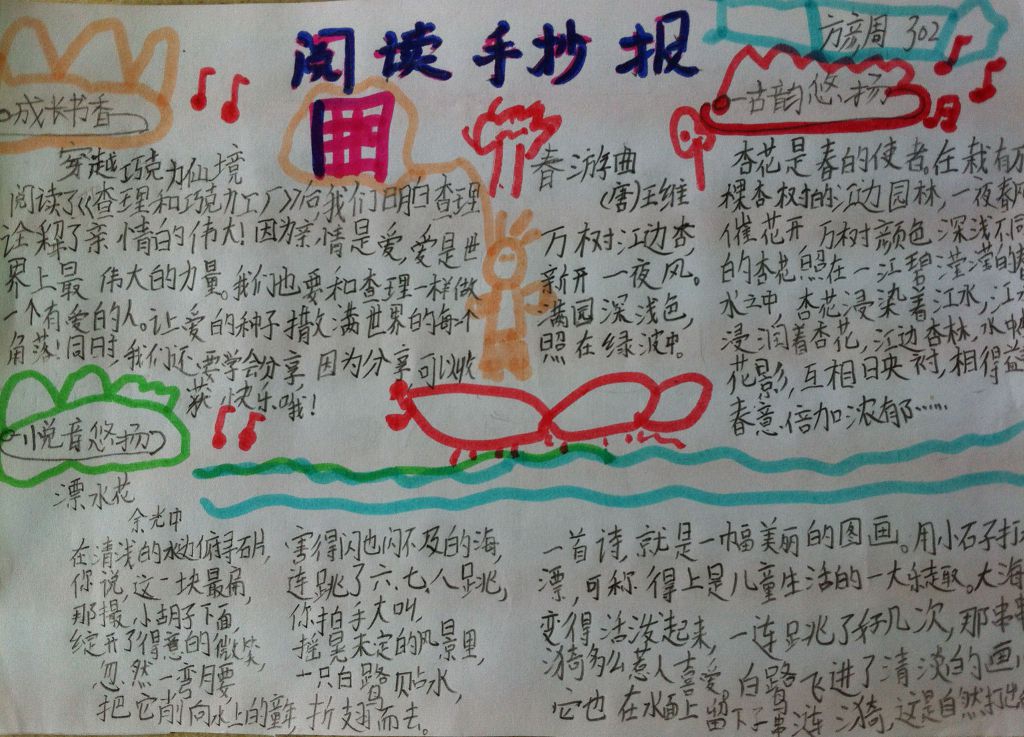 阅读手抄报
方彦周 302
成长书香
穿越巧克力仙境
阅读了《查理和巧克力工厂》后,我们明白查理
诠释了亲情的伟大!因为亲情是爱,爱是世
界上最伟大的力量。我们也要和查理一样做
一个有爱的人。让爱的种子撒满世界的每个
角落!同时,我们还要学会分享,因为分享,可以收
获快乐哦!
春游曲
(唐)王维
万树江边杏
新开一夜风。
满园深浅色,
照在绿波中。
古韵悠扬
杏花是春的使者,在栽有万
棵杏树的江边园林,一夜春风
催花开,万树颜色深浅不同
的杏花照在一江碧滢滢的春
水之中,杏花浸染着江水,江水
浸润着杏花,江边杏林,水中
花影,互相映衬,相得益
春意倍加浓郁……
悦音悠扬
漂水花
余光中
在清浅的水边俯寻石片,
你说,这一块最扁,
那撮小胡子下面,
绽开了得意的微笑,
忽然一弯腰
把它削向水上的童年,
害得闪也闪不及的海,
连跳了六、七、八跳,
你拍手大叫,
摇晃未定的风景里,
一只白鹭贴水,
折翅而去。
一首诗,就是一幅美丽的图画。用小石子打水
漂,可称得上是儿童生活的一大乐趣。大海
变得活泼起来,一连跳了好几次,那串串
漪多么惹人喜爱。白鹭飞进了清淡的画
它也在水面上留下了一串涟漪,这是自然打出